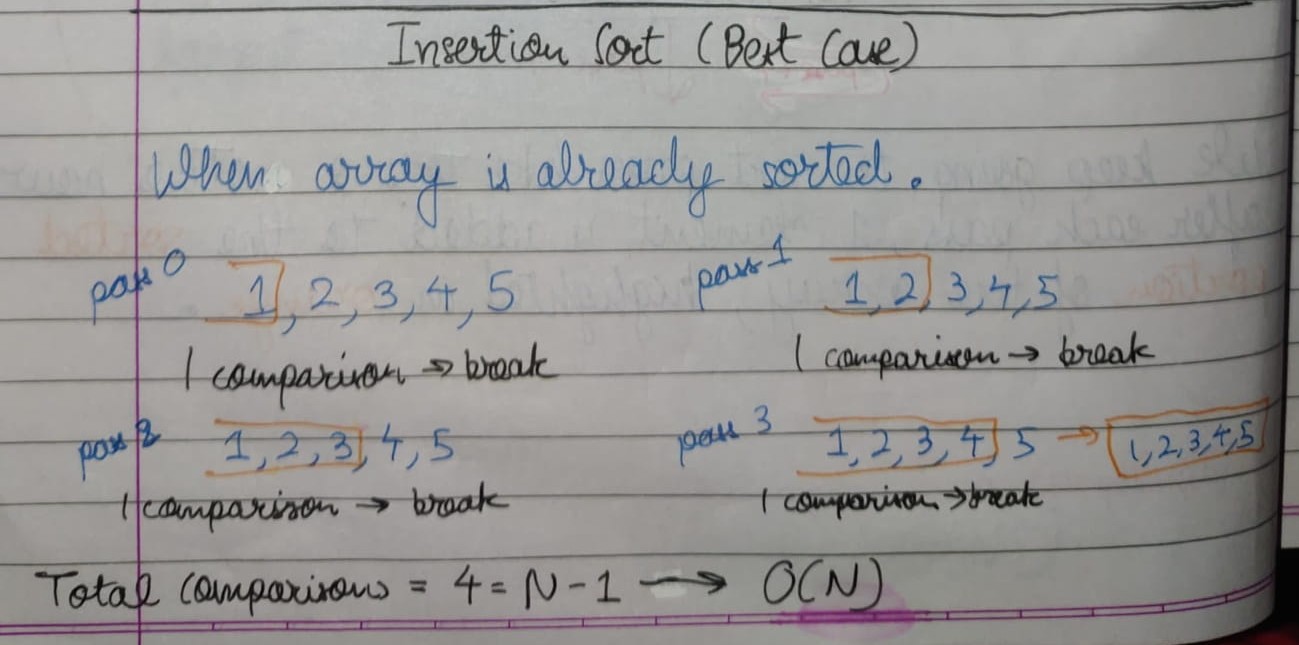 Insertion Sort (Best Case)
When array is already sorted.
pass 0 1, 2, 3, 4, 5
1 comparison → break
pass 1 1, 2, 3, 4, 5
1 comparison → break
pass 2 1, 2, 3, 4, 5
1 comparison → break
pass 3 1, 2, 3, 4, 5 → 1, 2, 3, 4, 5
1 comparison → break
Total Comparisons = 4 = N - 1 → O(N)